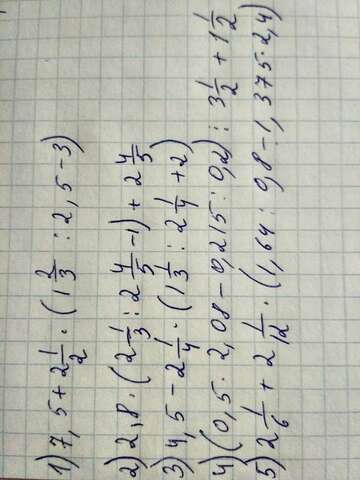 1) 7,5+2 1/2 · (1 2/3 : 2,5-3)
2) 2,8 · (2 1/3 : 2 4/5 -1) + 2 4/5
3) 4,5 - 2 1/4 · (1 1/3 : 2 1/4 +2)
4) (0,5 · 2,08 - 0,215 : 0,2) : 3 1/2 + 1 1/2
5) 2 1/6 + 2 1/12 · (1,64 : 0,8 - 1,375 · 2,4)